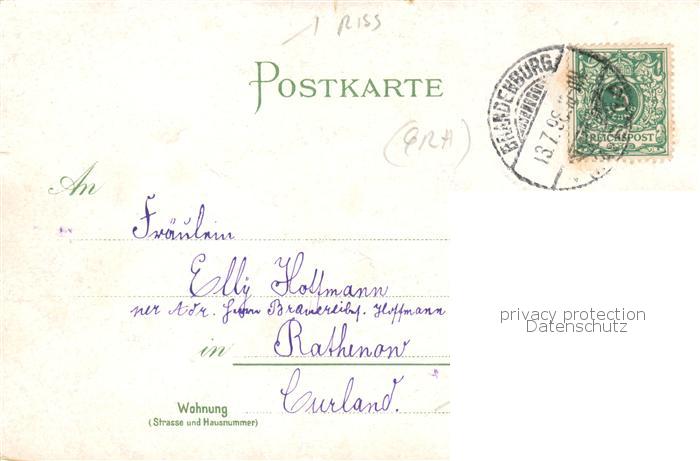 1 RISS
POSTKARTE
BRANDENBURG
13.7.98
REICHSPOST
5
(GRA)
An
Fräulein
Elly Hoffmann
per Adr. Herrn Brauereibes. Hoffmann
in Rathenow
Curland.
Wohnung
(Strasse und Hausnummer)
privacy protection
Datenschutz